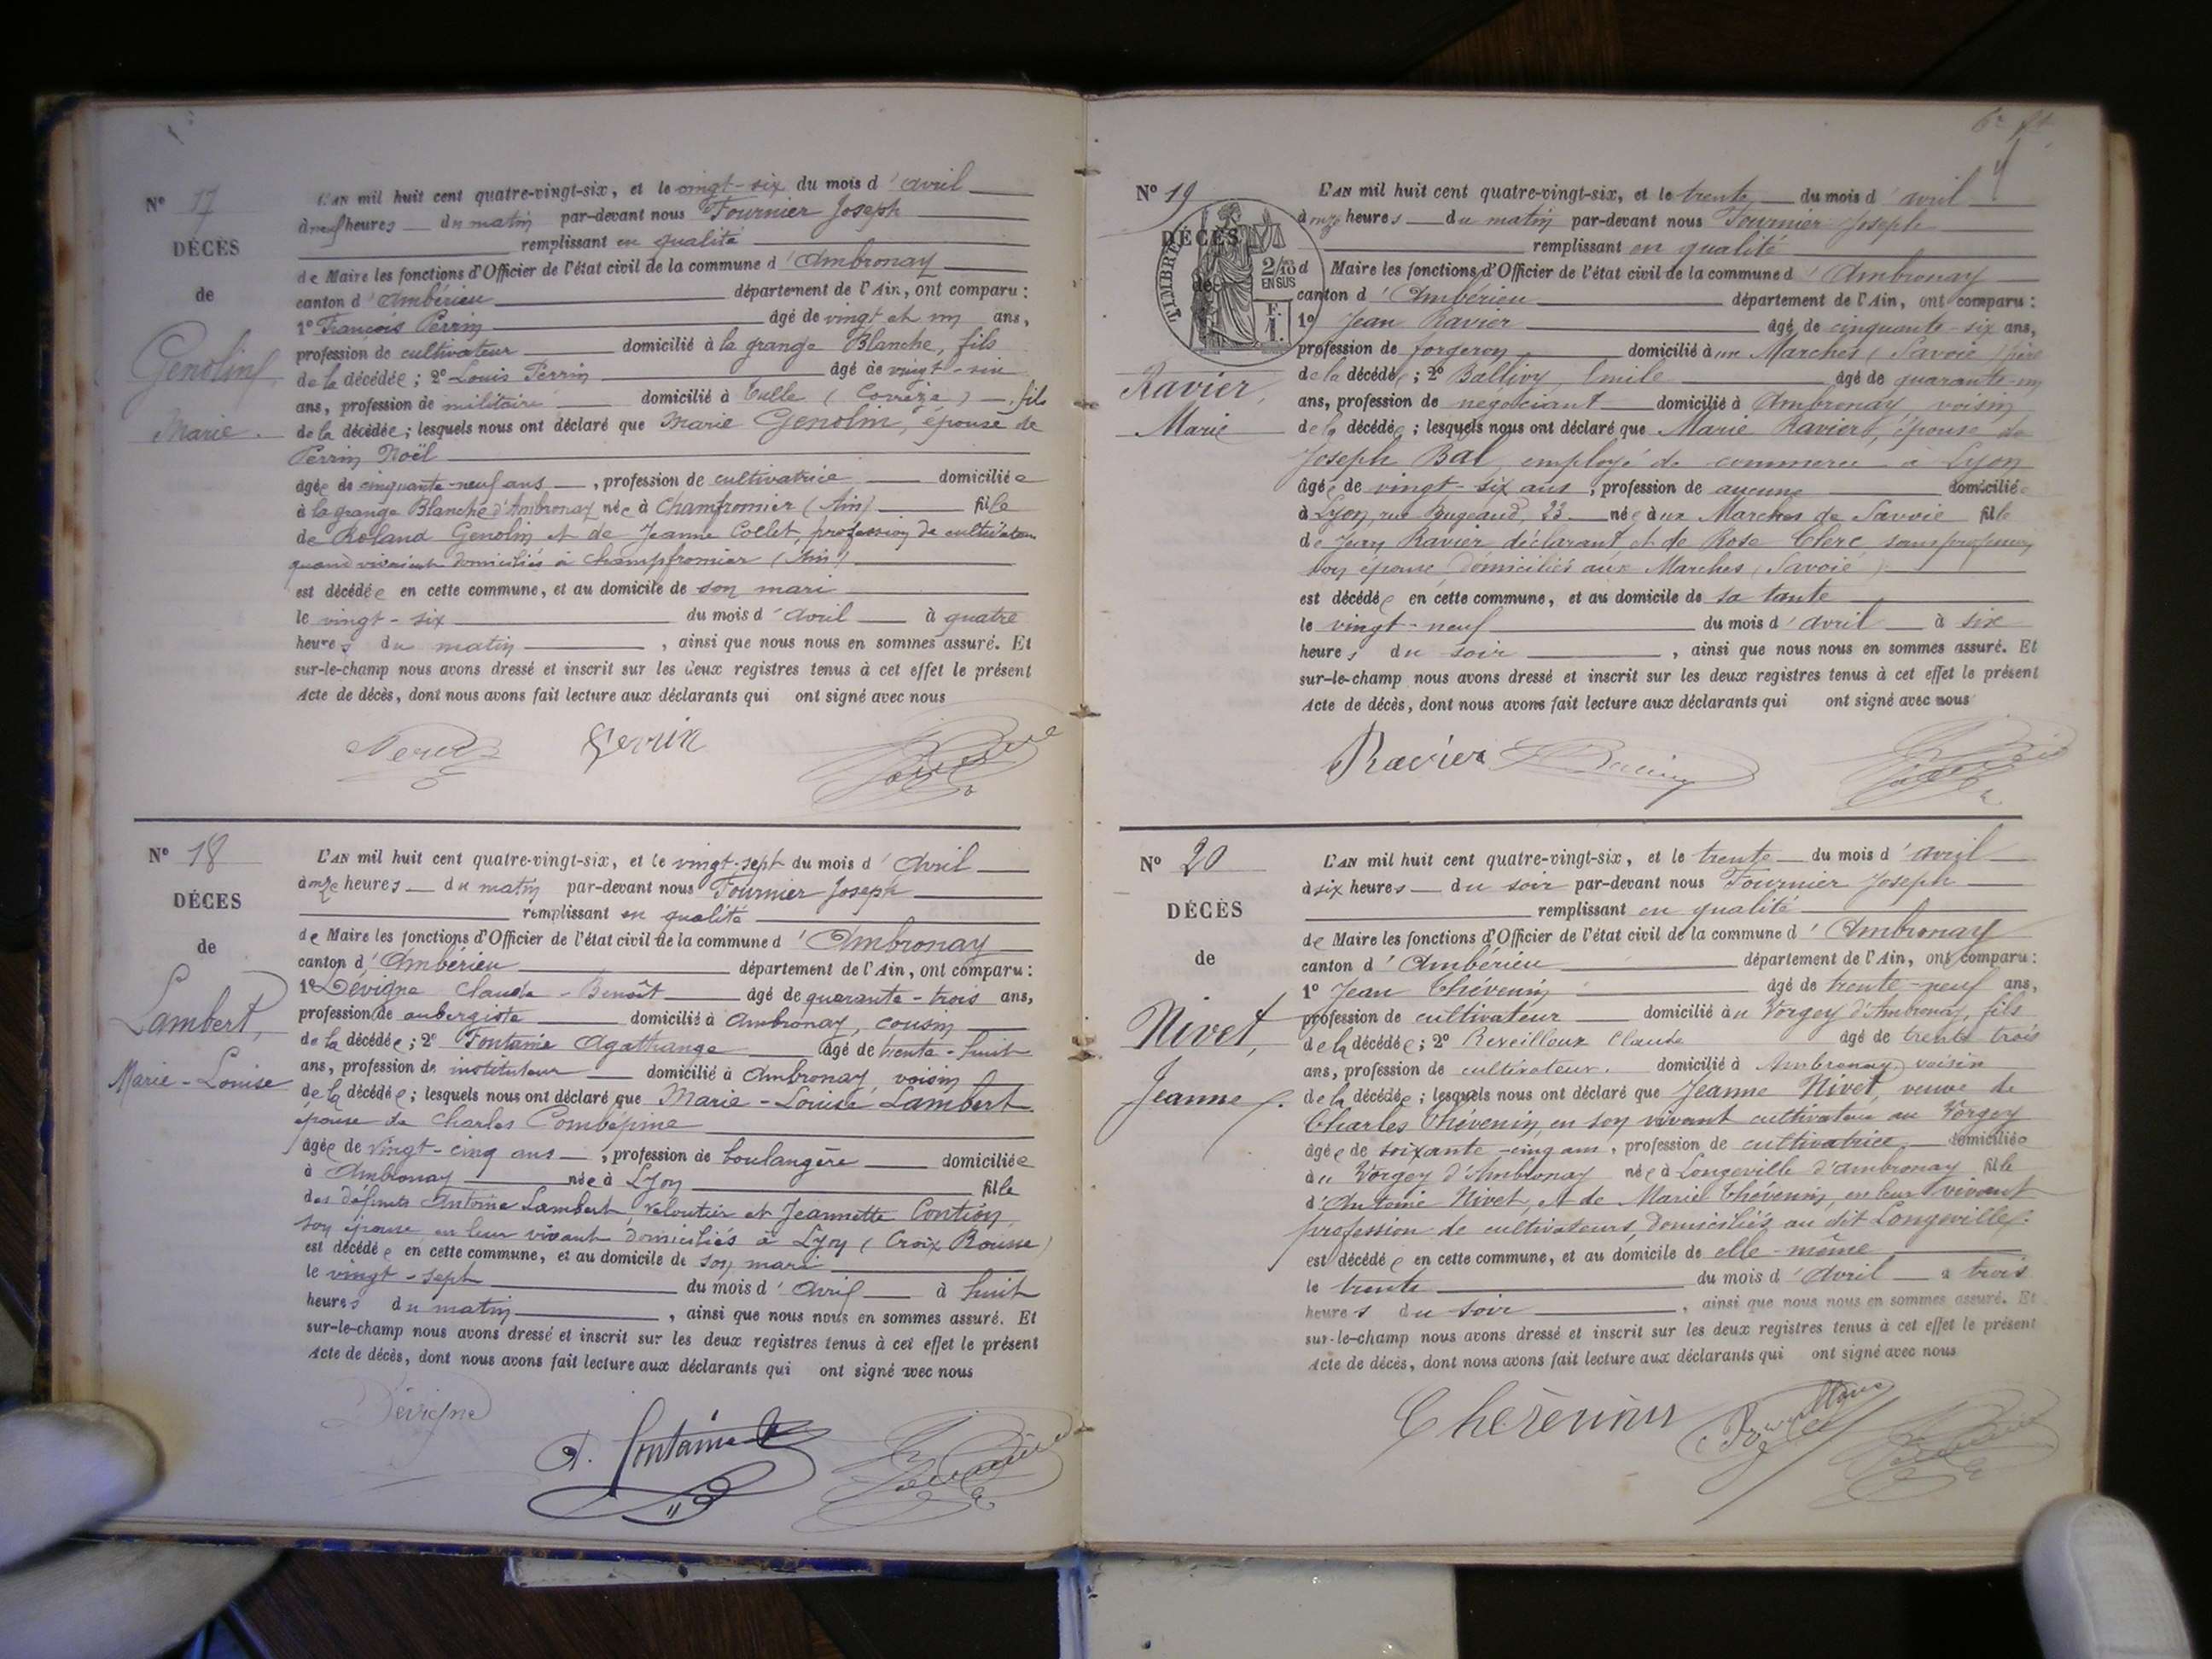 Nº 17
DÉCÈS
de
Genolin,
Marie.
L'AN mil huit cent quatre-vingt-six, et le vingt-six du mois d'avril
à neuf heures du matin par-devant nous Fournier Joseph
remplissant en qualité
de Maire les fonctions d'Officier de l'état civil de la commune d'Ambronay
canton d'Ambérieu département de l'Ain, ont comparu :
1º François Perrin âgé de vingt et un ans,
profession de cultivateur domicilié à la grange Blanche, fils
de la décédée ; 2º Louis Perrin âgé de vingt-six
ans, profession de militaire domicilié à Tulle (Corrèze), fils
de la décédée ; lesquels nous ont déclaré que Marie Genolin, épouse de
Perrin Noël
âgée de cinquante-neuf ans, profession de cultivatrice domiciliée
à la grange Blanche d'Ambronay née à Champfromier (Ain) fille
de Roland Genolin et de Jeanne Collet, profession de cultivateurs
quand vivaient domiciliés à Champfromier (Ain)
est décédée en cette commune, et au domicile de son mari
le vingt-six du mois d'avril à quatre
heures du matin, ainsi que nous nous en sommes assuré. Et
sur-le-champ nous avons dressé et inscrit sur les deux registres tenus à cet effet le présent
Acte de décès, dont nous avons fait lecture aux déclarants qui ont signé avec nous
Perrin
Nº 18
DÉCÈS
de
Lambert,
Marie-Louise
L'AN mil huit cent quatre-vingt-six, et le vingt-sept du mois d'Avril
à onze heures du matin par-devant nous Fournier Joseph
remplissant en qualité
de Maire les fonctions d'Officier de l'état civil de la commune d'Ambronay
canton d'Ambérieu département de l'Ain, ont comparu :
1º Dévigne Claude-Benoît âgé de quarante-trois ans,
profession de aubergiste domicilié à Ambronay, cousin
de la décédée ; 2º Fontaine Agathange âgé de trente-huit
ans, profession de instituteur domicilié à Ambronay, voisin
de la décédée ; lesquels nous ont déclaré que Marie-Louise Lambert
épouse de Charles Combépine
âgée de vingt-cinq ans, profession de boulangère domiciliée
à Ambronay née à Lyon fille
des défunts Antoine Lambert, veloutier et Jeannette Contion
son épouse en leur vivant domiciliés à Lyon (Croix Rousse)
est décédée en cette commune, et au domicile de son mari
le vingt-sept du mois d'Avril à huit
heures du matin, ainsi que nous nous en sommes assuré. Et
sur-le-champ nous avons dressé et inscrit sur les deux registres tenus à cet effet le présent
Acte de décès, dont nous avons fait lecture aux déclarants qui ont signé avec nous
Dévigne
A. Fontaine
Nº 19
DÉCÈS
de
TIMBRE
2/10 EN SUS
F. 1.
Ravier,
Marie
L'AN mil huit cent quatre-vingt-six, et le trente du mois d'avril
à onze heures du matin par-devant nous Fournier Joseph
remplissant en qualité
d Maire les fonctions d'Officier de l'état civil de la commune d'Ambronay
canton d'Ambérieu département de l'Ain, ont comparu :
1º Jean Ravier âgé de cinquante-six ans,
profession de forgeron domicilié aux Marches (Savoie) père
de la décédée ; 2º Ballivy Emile âgé de quarante-un
ans, profession de négociant domicilié à Ambronay voisin
de la décédée ; lesquels nous ont déclaré que Marie Ravier, épouse de
Joseph Bal, employé de commerce à Lyon
âgée de vingt-six ans, profession de aucune domiciliée
à Lyon, rue Bugeaud, 23 née aux Marches de Savoie fille
de Jean Ravier déclarant et de Rose Clerc sans profession
son épouse domiciliés aux Marches (Savoie)
est décédée en cette commune, et au domicile de sa tante
le vingt-neuf du mois d'avril à six
heures du soir, ainsi que nous nous en sommes assuré. Et
sur-le-champ nous avons dressé et inscrit sur les deux registres tenus à cet effet le présent
Acte de décès, dont nous avons fait lecture aux déclarants qui ont signé avec nous
Ravier
Nº 20
DÉCÈS
de
Nivet,
Jeanne
L'AN mil huit cent quatre-vingt-six, et le trente du mois d'avril
à six heures du soir par-devant nous Fournier Joseph
remplissant en qualité
de Maire les fonctions d'Officier de l'état civil de la commune d'Ambronay
canton d'Ambérieu département de l'Ain, ont comparu :
1º Jean Thévenin âgé de trente-neuf ans,
profession de cultivateur domicilié au Vorgey d'Ambronay, fils
de la décédée ; 2º Reveilloux Claude âgé de trente trois
ans, profession de cultivateur. domicilié à Ambronay, voisin
de la décédée ; lesquels nous ont déclaré que Jeanne Nivet, veuve de
Charles Thévenin, en son vivant cultivateur au Vorgey
âgée de soixante-cinq ans, profession de cultivatrice domiciliée
au Vorgey d'Ambronay née à Longeville d'Ambronay fille
d'Antoine Nivet, et de Marie Thévenin, en leur vivant
profession de cultivateurs, domiciliés au dit Longeville.
est décédée en cette commune, et au domicile de elle-même
le trente du mois d'Avril à trois
heures du soir, ainsi que nous nous en sommes assuré. Et
sur-le-champ nous avons dressé et inscrit sur les deux registres tenus à cet effet le présent
Acte de décès, dont nous avons fait lecture aux déclarants qui ont signé avec nous
Thévenin